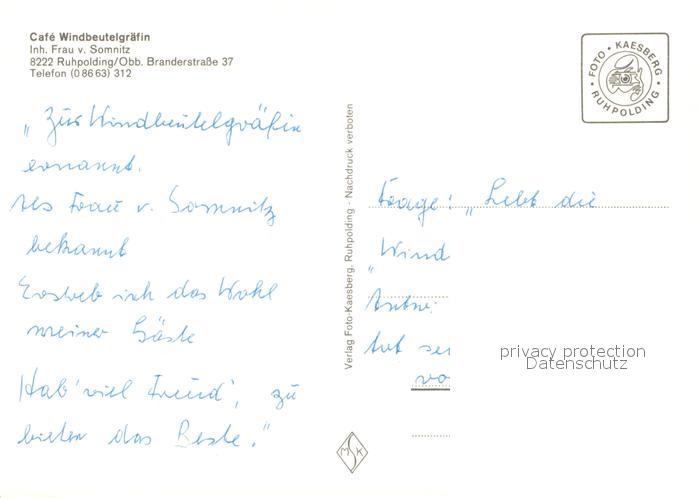 Café Windbeutelgräfin
Inh. Frau v. Somnitz
8222 Ruhpolding/Obb. Branderstraße 37
Telefon (0 86 63) 312
„Zur Windbeutelgräfin
ernannt.
Als Frau v. Somnitz
bekannt
Erstreb ich das Wohl
meiner Gäste
Hab' viel Freud', zu
bieten das Beste."
Verlag Foto-Kaesberg, Ruhpolding - Nachdruck verboten
FOTO · KAESBERG · RUHPOLDING ·
Frage: „Lebt die
„Wind
Antw:
vo
MSK
privacy protection
Datenschutz